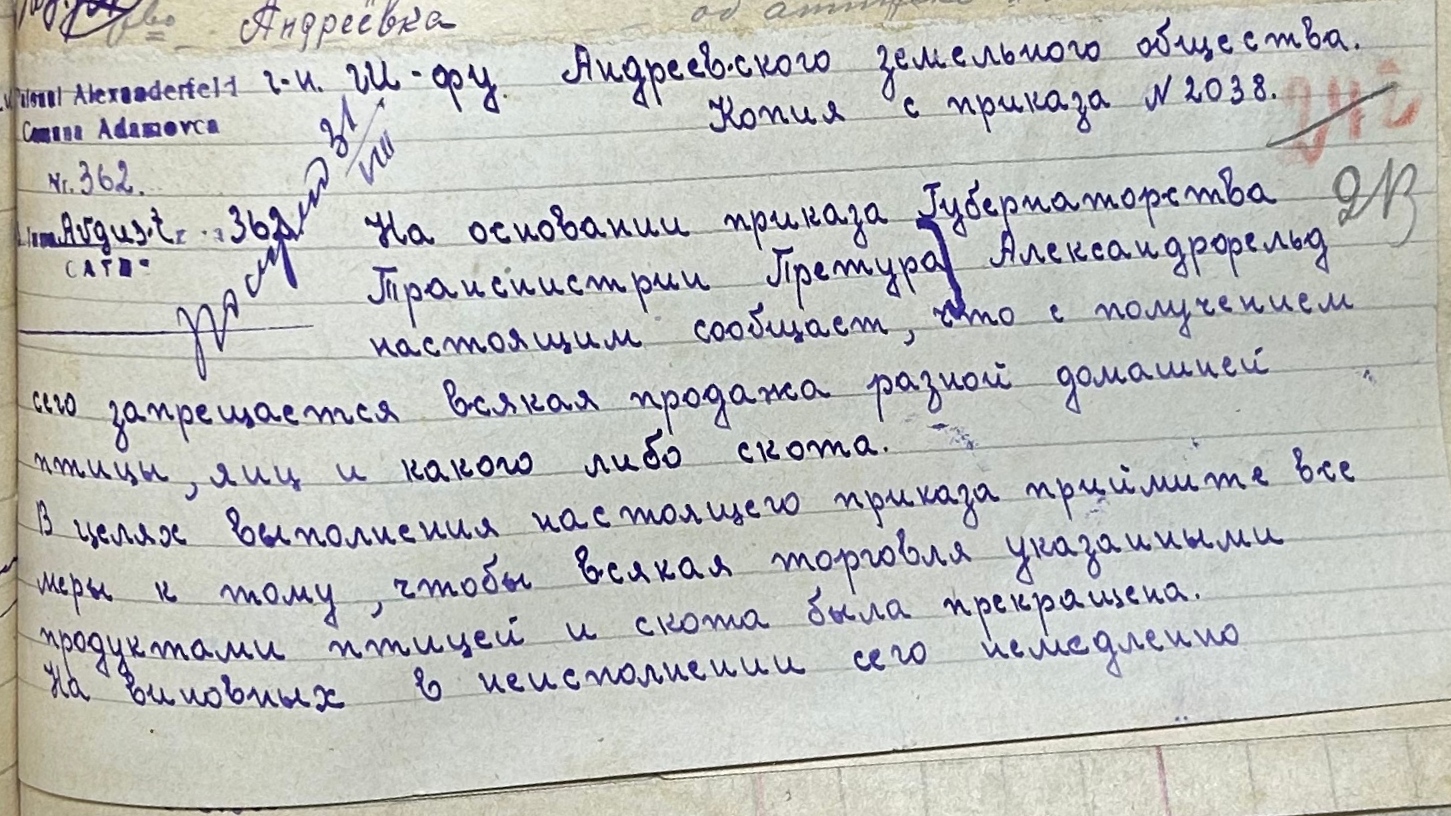 Андреевка
Alexanderfeld г-н. Ш-фу. Андреевского земельного общества.
Comuna Adamovca Копия с приказа N 2038.
Nr. 362.
August 31/VIII
На основании приказа Губернаторства 213
Транснистрии Претура Александрофельд
настоящим сообщает, что с получением
сего запрещается всякая продажа разной домашней
птицы, яиц и какого либо скота.
В целях выполнения настоящего приказа приймите все
меры к тому, чтобы всякая торговля указанными
продуктами птицей и скота была прекращена.
На виновных в неисполнении сего немедленно